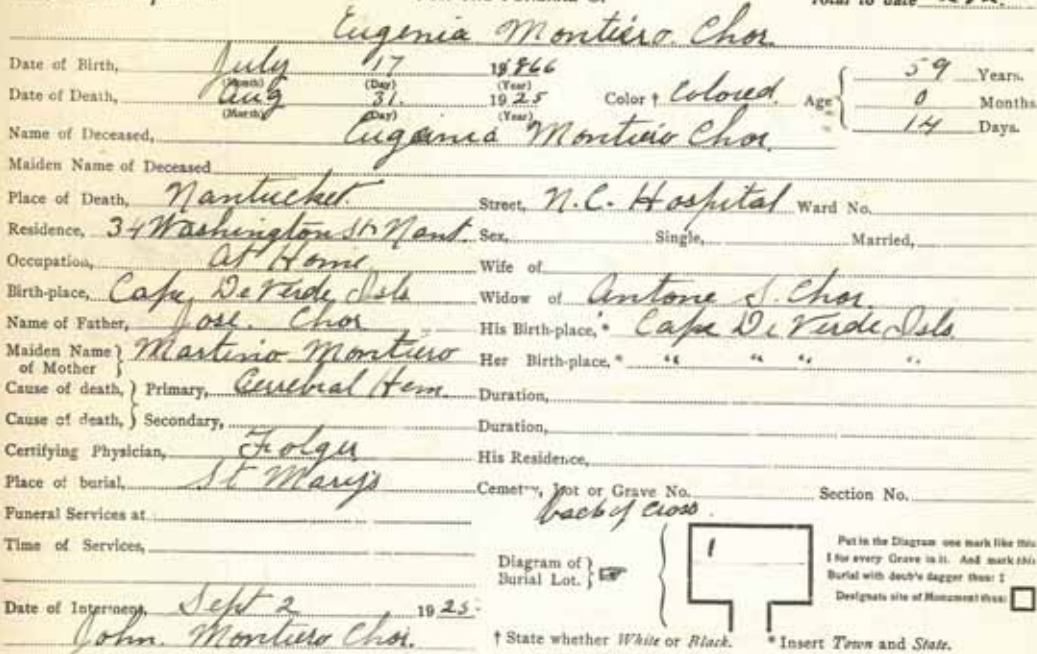 Total to date
Eugenia Montiero Chor.
Date of Birth, July 17 1866 59 Years.
(Month) (Day) (Year)
Date of Death, Aug 31. 1925 Color † Colored. Age 0 Months
(Month) (Day) (Year) 14 Days.
Name of Deceased, Eugenia Montiero Chor.
Maiden Name of Deceased
Place of Death, Nantucket. Street, N.C. Hospital Ward No.
Residence, 34 Washington St. Nant. Sex, Single, Married,
Occupation, At Home Wife of
Birth-place, Cape De Verde Isls Widow of Antone S. Chor.
Name of Father, Jose. Chor His Birth-place,* Cape De Verde Isls.
Maiden Name of Mother } Martino Montiero Her Birth-place,* " " " "
Cause of death, } Primary, Cerrebral Hem. Duration,
Cause of death, } Secondary, Duration,
Certifying Physician, Folger His Residence,
Place of burial, St Mary's Cemetry, Lot or Grave No. Section No.
back of cross.
Funeral Services at
Time of Services,
Diagram of Burial Lot. } 1
Put in the Diagram one mark like this
I for every Grave in it. And mark this
Burial with doub'e dagger thus: ‡
Designate site of Monument thus:
Date of Interment, Sept 2 1925.
John. Montiero Chor. † State whether White or Black. * Insert Town and State.